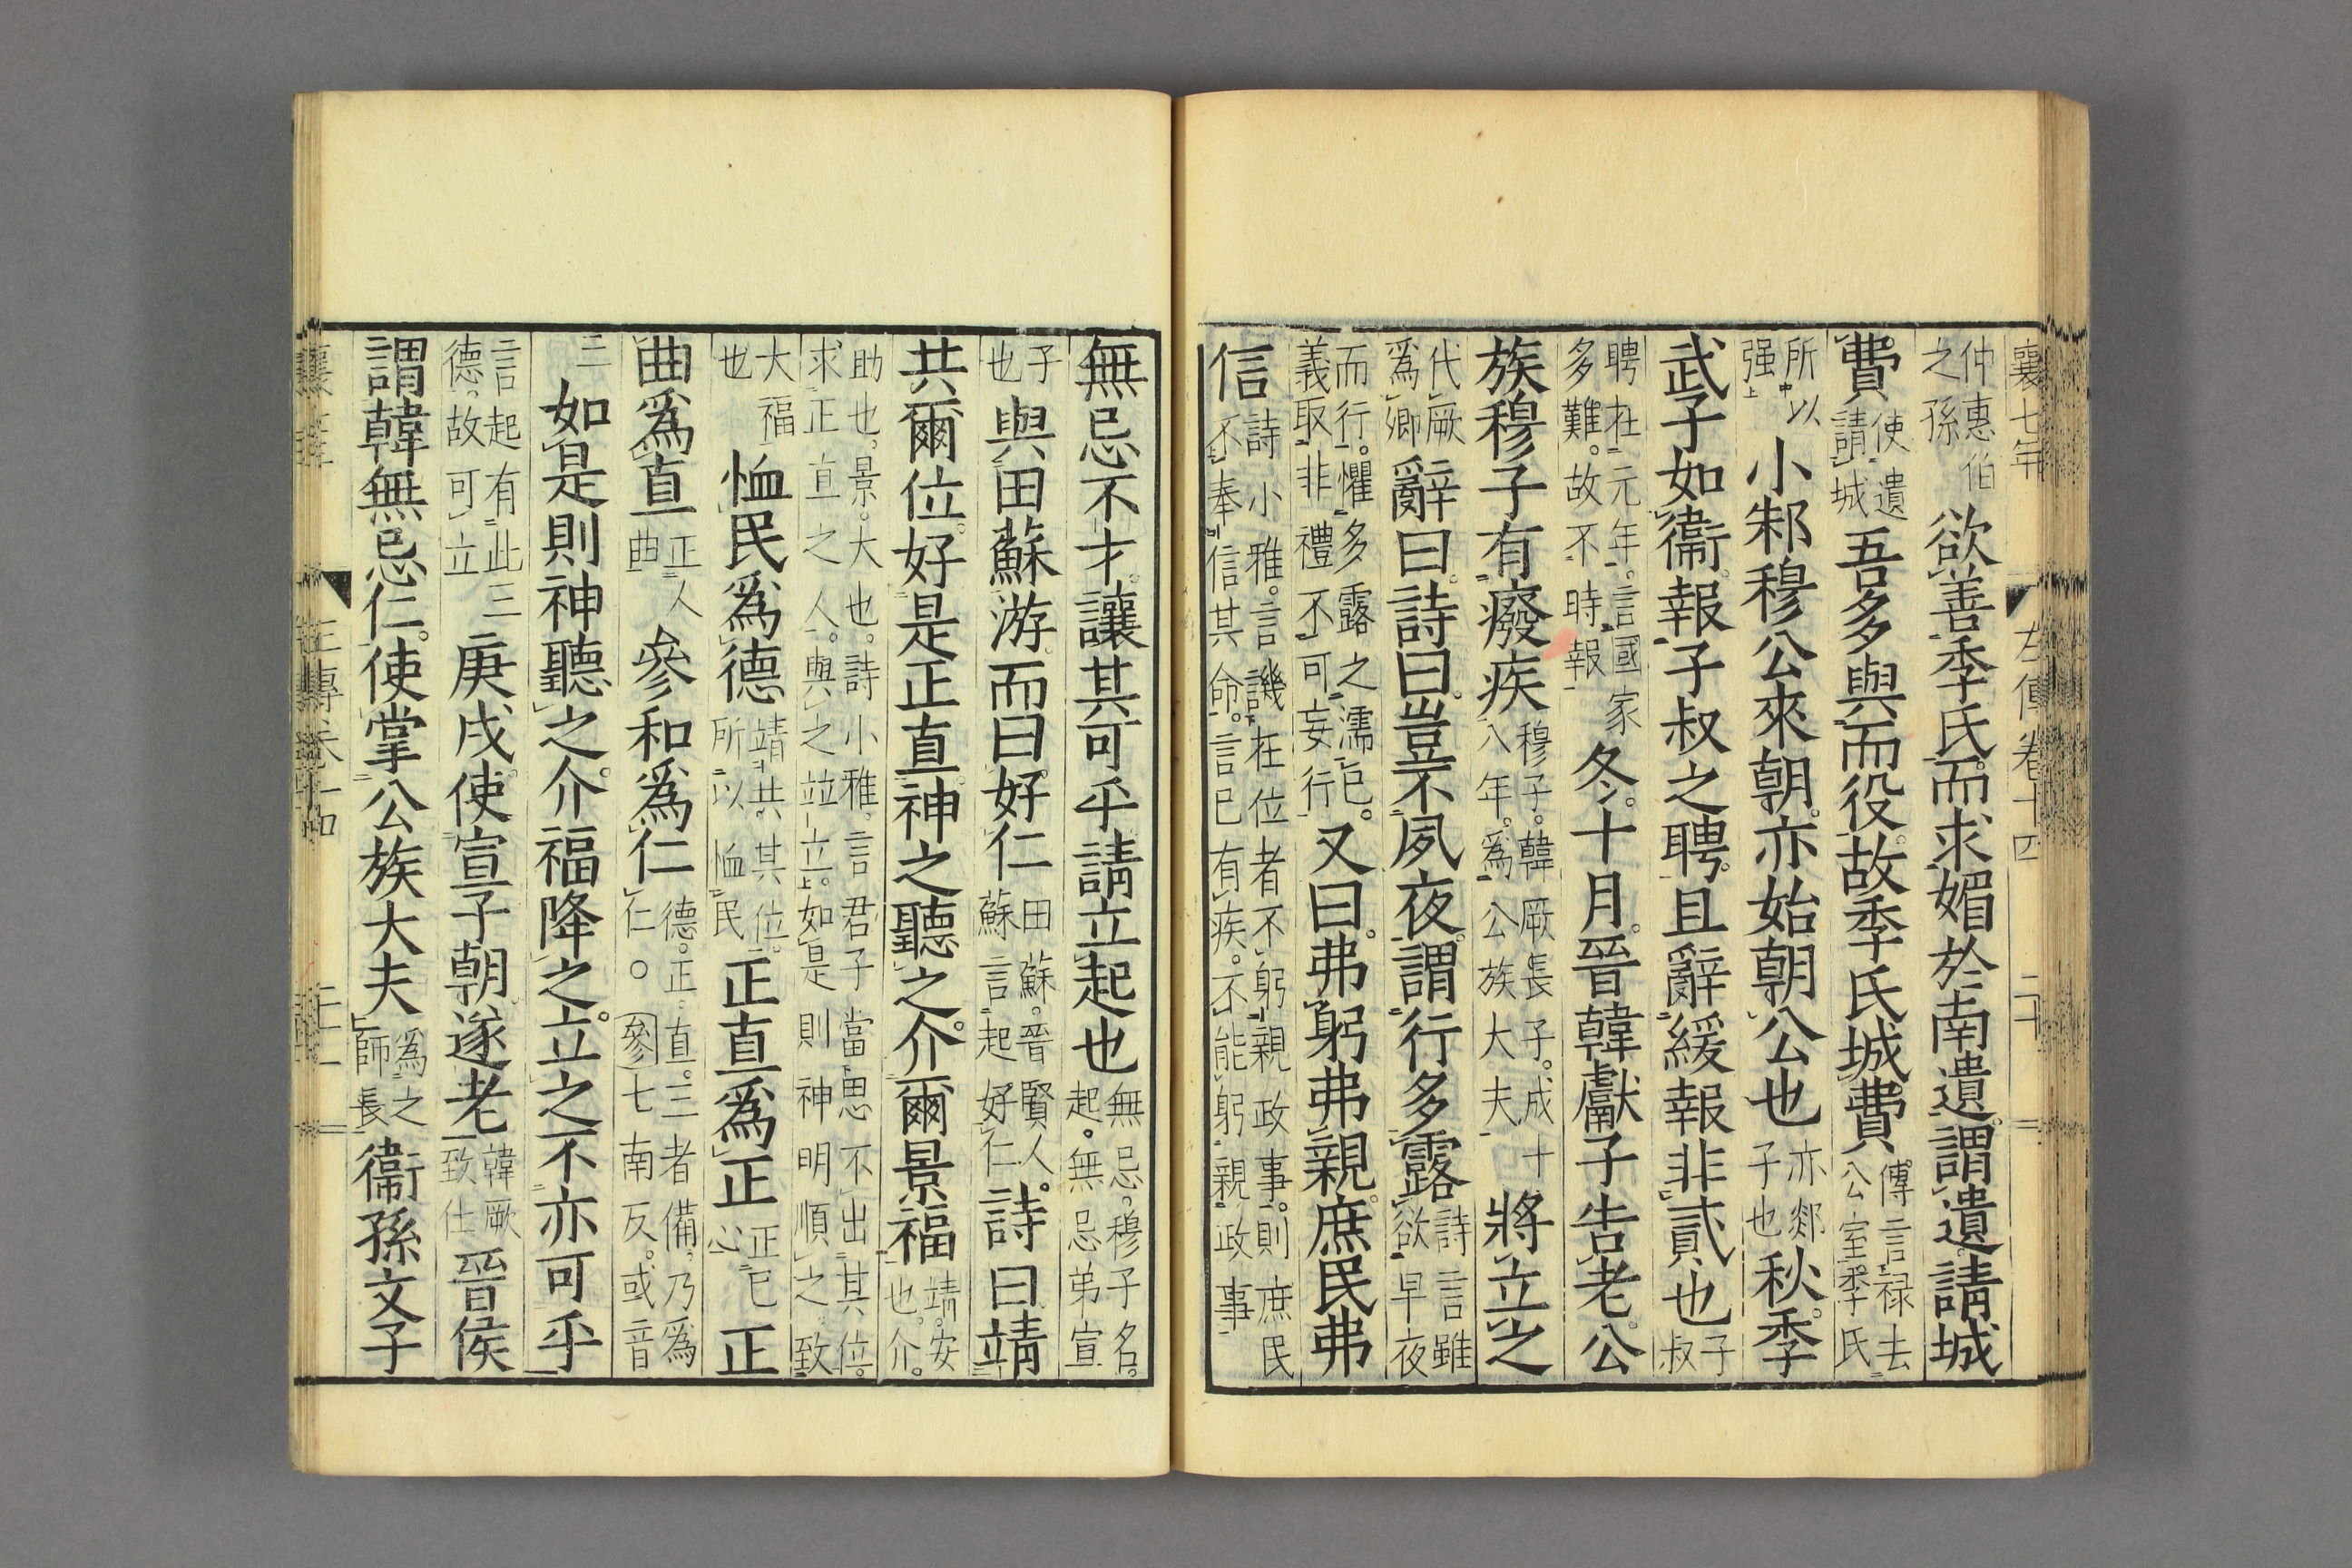 襄七年 左傳卷十四 二十
仲惠伯之孫欲善季氏而求媚於南遺謂遺請城
費使遺請城吾多與而役故季氏城費傳言祿去公室季氏
所以强小邾穆公來朝亦始朝公也亦郯子也秋季
武子如衞報子叔之聘且辭緩報非貳也子叔
聘在元年言國家多難故不時報冬十月晉韓獻子告老公
族穆子有癈疾穆子韓厥長子成十八年爲公族大夫將立之
代厥爲卿辭曰詩曰豈不夙夜謂行多露詩言雖欲早夜
而行懼多露之濡已義取非禮不可妄行又曰弗躬弗親庶民弗
信詩小雅言譏在位者不躬親政事則庶民不奉信其命言已有疾不能躬親政事
無忌不才讓其可乎請立起也無忌穆子名起無忌弟宣
子也與田蘇游而曰好仁田蘇晉賢人蘇言起好仁詩曰靖
共爾位好是正直神之聽之介爾景福靖安也介
助也景大也詩小雅言君子當思不出其位求正直之人與之竝立如是則神明順之致
大福也恤民爲德靖共其位所以恤民正直爲正正已心正
曲爲直正人曲參和爲仁德正直三者備乃爲仁○參七南反或音
三如是則神聽之介福降之立之不亦可乎
言起有此三德故可立庚戌使宣子朝遂老韓厥致仕晉侯
謂韓無忌仁使掌公族大夫爲之師長衞孫文子